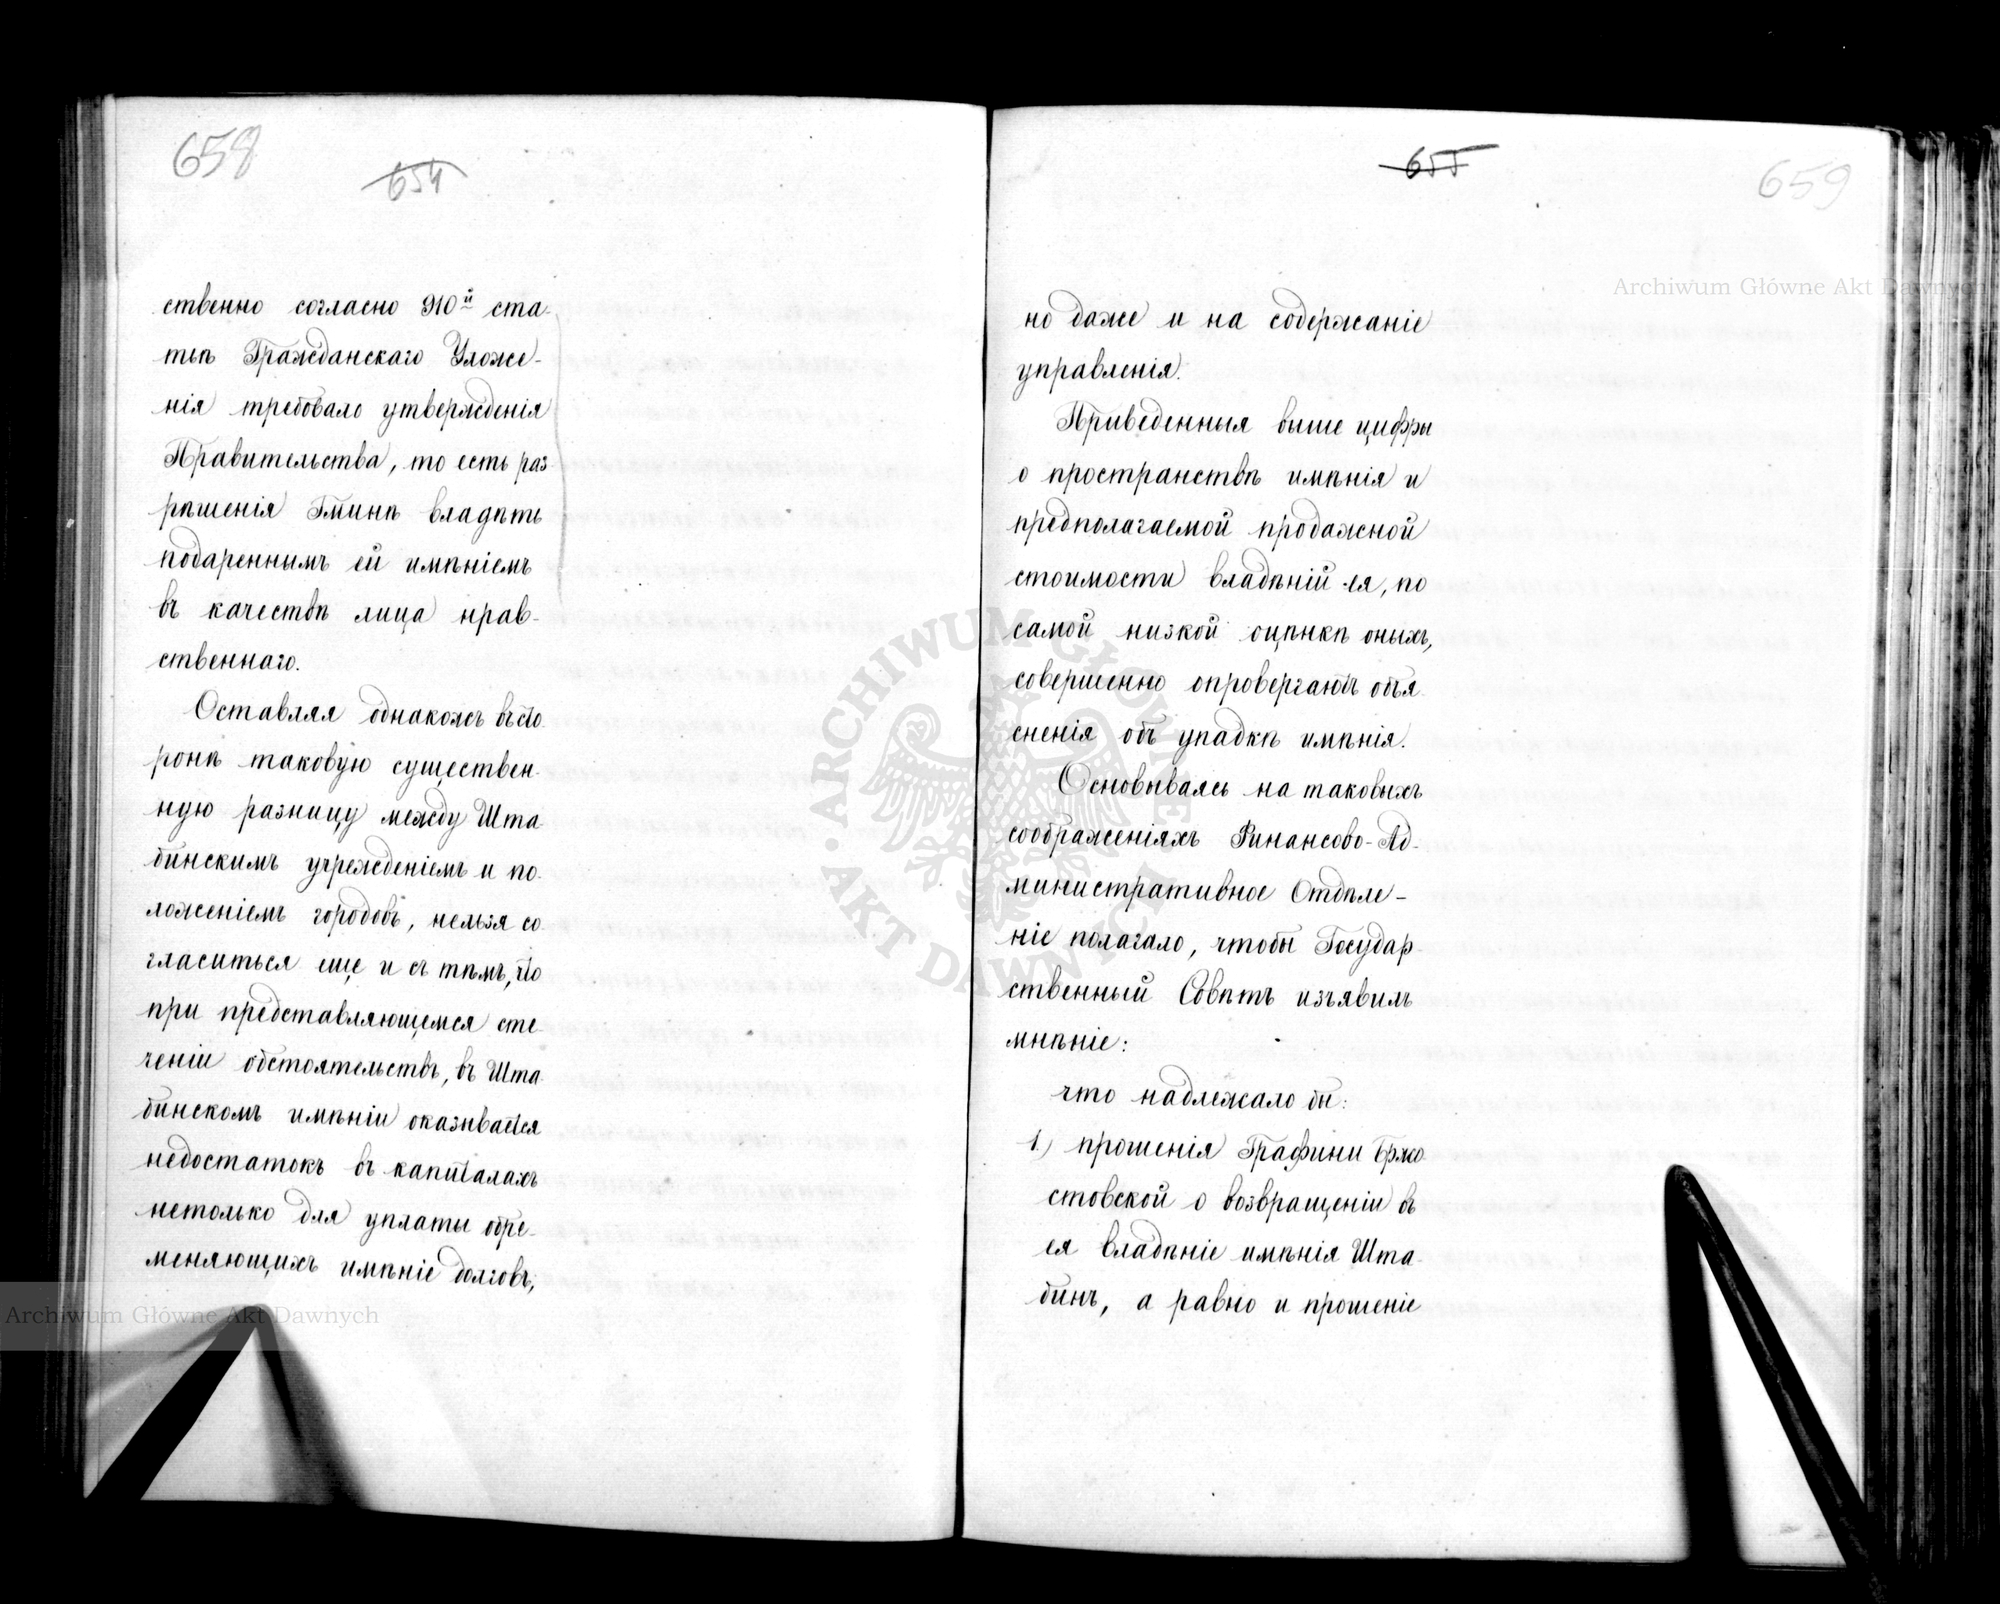 658
654
ственно согласно 910й ста-
тьѣ Гражданскаго Уложе-
нія требовало утвержденія
Правительства, то есть раз
рѣшенія Гминѣ владѣть
подареннымъ ей имѣніемъ
въ качествѣ лица нрав-
ственнаго.
Оставляя однакожъ въ сто
ронѣ таковую существен-
ную разницу между Шта-
бинскимъ учрежденіемъ и по-
ложеніемъ городовъ, нельзя со
гласиться еще и съ тѣмъ, что
при представляющемся сте-
ченіи обстоятельствъ, въ Шта
бинскомъ имѣніи оказывается
недостатокъ въ капиталахъ
нетолько для уплаты обре-
меняющихъ имѣніе долговъ,
Archiwum Główne Akt Dawnych
655
659
Archiwum Główne Akt Dawnych
но даже и на содержаніе
управленія.
Приведенныя выше цифры
о пространствѣ имѣнія и
предполагаемой продажной
стоимости владѣній ея, по
самой низкой оцѣнкѣ оныхъ,
совершенно опровергаютъ объя
сненія объ упадкѣ имѣнія.
Основываясь на таковыхъ
соображеніяхъ Финансово-Ад-
министративное Отдѣле-
ніе полагало, чтобы Государ-
ственный Совѣтъ изъявилъ
мнѣніе:
что надлежало бы:
1.) прошенія Графини Бржо
стовской о возвращеніи въ
ея владѣніе имѣнія Шта-
бинъ, а равно и прошеніе
ARCHIWUM GŁÓWNE AKT DAWNYCH